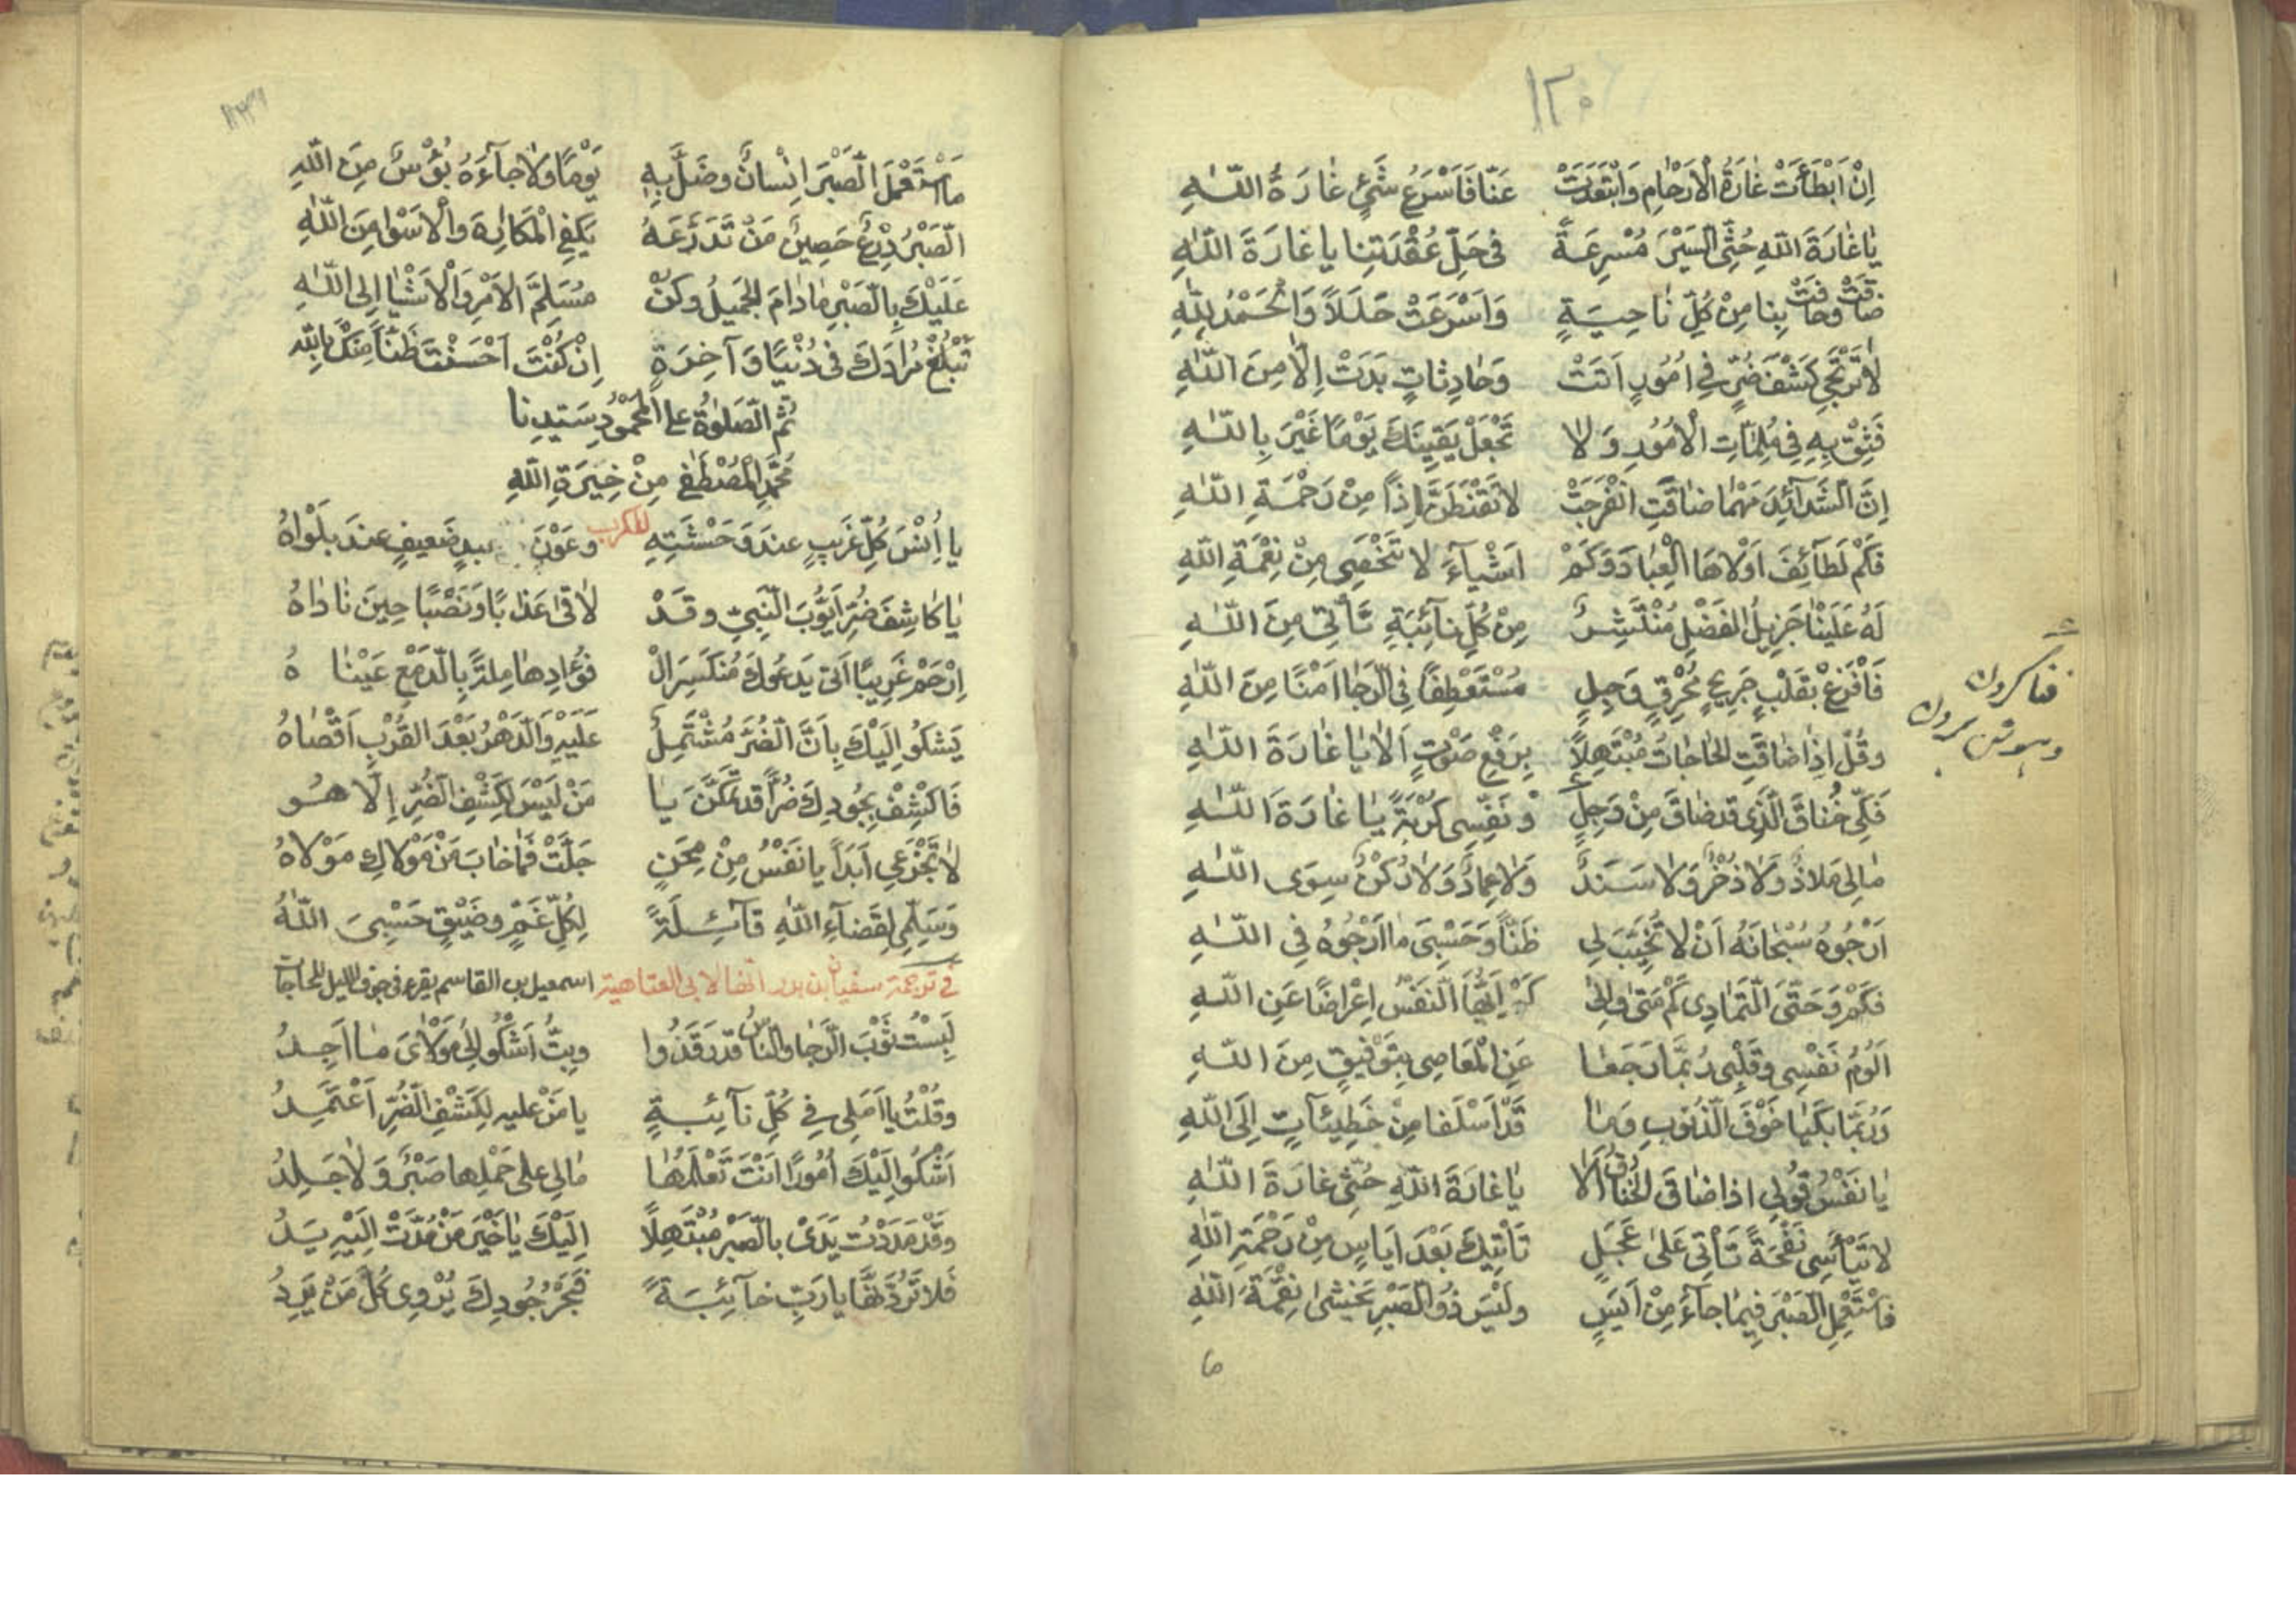 ١٢٠
اِنْ اَبْطَأَتْ غَارَةُ الْاَرْحَامِ وَابْتَعَدَتْ عَنَّا فَاَسْرَعُ شَيْءٍ غَارَةُ اللّٰهِ
يَا غَارَةَ اللّٰهِ حُثِّي السَّيْرَ مُسْرِعَةً فِي حَلِّ عُقْدَتِنَا يَا غَارَةَ اللّٰهِ
ضَاقَتْ وَحَاقَتْ بِنَا مِنْ كُلِّ نَاحِيَةٍ وَاَسْرَعَتْ خَلَلاً وَالْحَمْدُ لِلّٰهِ
لَا تَرْتَجِي كَشْفَ ضُرٍّ فِي اُمُورٍ اَتَتْ وَحَادِثَاتٍ بَدَتْ اِلَّا مِنَ اللّٰهِ
فَثِقْ بِهِ فِي مُلِمَّاتِ الْاُمُورِ وَلَا تَجْعَلْ يَقِينَكَ يَوْمًا غَيْرَ بِاللّٰهِ
اِنَّ الشَّدَآئِدَ مَهْمَا ضَاقَتِ انْفَرَجَتْ لَا تَقْنَطَنَّ اِذًا مِنْ رَحْمَةِ اللّٰهِ
فَكَمْ لَطَآئِفَ اَوْلَاهَا الْعِبَادَ وَكَمْ اَشْيَآءَ لَا تُحْصَى مِنْ نِعْمَةِ اللّٰهِ
لَهُ عَلَيْنَا جَزِيلُ الْفَضْلِ مُنْتَشِرٌ مِنْ كُلِّ نَآئِبَةٍ تَأْتِي مِنَ اللّٰهِ
فَافْزَعْ بِقَلْبٍ جَرِيحٍ مُحْرَقٍ وَجِلٍ مُسْتَعْطِفًا فِي الرَّجَا اَمْنًا مِنَ اللّٰهِ
وَقُلْ اِذَا ضَاقَتِ الْحَاجَاتُ مُبْتَهِلاً بِرَفْعِ صَوْتٍ اَلَا يَا غَارَةَ اللّٰهِ
فَكِّي خُنَاقَ الَّذِي قَدْ ضَاقَ مِنْ وَجِلٍ وَنَفِّسِي كُرْبَةً يَا غَارَةَ اللّٰهِ
مَا لِي مَلَاذٌ وَلَا ذُخْرٌ وَلَا سَنَدٌ وَلَا عِمَادٌ وَلَا رُكْنٌ سِوَى اللّٰهِ
اَرْجُوهُ سُبْحَانَهُ اَنْ لَا تُخَيِّبَ لِي ظَنًّا وَحَسْبِيَ مَا اَرْجُوهُ فِي اللّٰهِ
فَكَمْ وَحَتَّى التَّمَادِي كَمْ مَتَى وَاِلَى كَمْ اَيُّهَا النَّفْسُ اِعْرَاضًا عَنِ اللّٰهِ
اَلُومُ نَفْسِي وَقَلْبِي رُبَّمَا رَجَعَا عَنِ الْمَعَاصِي بِتَوْفِيقٍ مِنَ اللّٰهِ
وَرُبَّمَا بَكَيَا خَوْفَ الذُّنُوبِ وَمَا قَدْ اَسْلَفَا مِنْ خَطِيئَاتٍ اِلَى اللّٰهِ
يَا نَفْسُ قُولِي اِذَا ضَاقَ الْخُنَاقُ اَلَا يَا غَارَةَ اللّٰهِ حُثِّي غَارَةَ اللّٰهِ
لَا تَيْأَسِي نَفْحَةً تَأْتِي عَلَى عَجَلٍ تَأْتِيكَ بَعْدَ اَيَاسٍ مِنْ رَحْمَةِ اللّٰهِ
فَاسْتَعْمِلِ الصَّبْرَ فِيمَا جَآءَ مِنْ اَيَسٍ وَلَيْسَ ذُو الصَّبْرِ يَخْشَى نِقْمَةَ اللّٰهِ
مَا اسْتَعْمَلَ الصَّبْرَ اِنْسَانٌ وَضَلَّ بِهِ يَوْمًا وَلَا جَآءَهُ بُؤْسٌ مِنَ اللّٰهِ
اَلصَّبْرُ دِرْعٌ حَصِينٌ مَنْ تَدَرَّعَهُ يَكْفِي الْمَكَارِهَ وَالْاَسْوَا مِنَ اللّٰهِ
عَلَيْكَ بِالصَّبْرِ مَا دَامَ الْجَمِيلُ وَكُنْ مُسَلِّمَ الْاَمْرِ وَالْاَشْيَا اِلَى اللّٰهِ
تَبْلُغْ مُرَادَكَ فِي دُنْيًا وَآخِرَةٍ اِنْ كُنْتَ اَحْسَنْتَ ظَنًّا مِنْكَ بِاللّٰهِ
ثُمَّ الصَّلٰوةُ عَلَى الْمَحْمُودِ سَيِّدِنَا
مُحَمَّدِ الْمُصْطَفَى مِنْ خِيَرَةِ اللّٰهِ
للكرب
يَا اُنْسَ كُلِّ غَرِيبٍ عِنْدَ وَحْشَتِهِ وَعَوْنَ ضَعِيفٍ عِنْدَ بَلْوَاهُ
يَا كَاشِفَ ضُرِّ اَيُّوبَ النَّبِيِّ وَقَدْ لَاقَى عَذَابًا وَنَصْبًا حِينَ نَادَاهُ
اِرْحَمْ غَرِيبًا اَتَى يَدْعُوكَ مُنْكَسِرَ الْ فُؤَادِ هَامِلَةً بِالدَّمْعِ عَيْنَاهُ
يَشْكُو اِلَيْكَ بِاَنَّ الضُّرَّ مُشْتَمِلٌ عَلَيْهِ وَالدَّهْرُ بَعْدَ الْقُرْبِ اَقْصَاهُ
فَاكْشِفْ بِجُودِكَ ضُرًّا قَدْ تَمَكَّنَ يَا مَنْ لَيْسَ لِكَشْفِ الضُّرِّ اِلَّا هُو
لَا تَجْزَعِي اَبَدًا يَا نَفْسُ مِنْ مِحَنٍ جَلَّتْ فَمَا خَابَ مَنْ مَوْلَاكِ مَوْلَاهُ
وَسَلِّمِي لِقَضَآءِ اللّٰهِ قَآئِلَةً لِكُلِّ غَمٍّ وَضِيقٍ حَسْبِيَ اللّٰهُ
في ترجمة سفيان بن لابى العتاهية اسمعيل بن القاسم يقرء فى جوف الليل للحاجات
لَبِسْتُ ثَوْبَ الرَّجَا وَالنَّاسُ قَدْ رَقَدُوا وَبِتُّ اَشْكُو اِلَى مَوْلَايَ مَا اَجِدُ
وَقُلْتُ يَا اَمَلِي فِي كُلِّ نَآئِبَةٍ يَا مَنْ عَلَيْهِ لِكَشْفِ الضُّرِّ اَعْتَمِدُ
اَشْكُو اِلَيْكَ اُمُورًا اَنْتَ تَعْلَمُهَا مَا لِي عَلَى حَمْلِهَا صَبْرٌ وَلَا جَلَدُ
وَقَدْ مَدَدْتُ يَدَيَّ بِالصَّبْرِ مُبْتَهِلًا اِلَيْكَ يَا خَيْرَ مَنْ مُدَّتْ اِلَيْهِ يَدُ
فَلَا تَرُدَّنَّهَا يَا رَبِّ خَآئِبَةً فَبَحْرُ جُودِكَ يُرْوِي كُلَّ مَنْ يَرِدُ